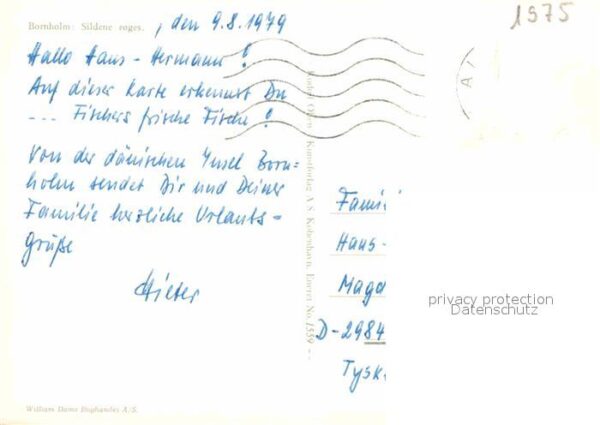 Bornholm: Sildene røges.
, den 9.8.1979
1975
Hallo Hans-Hermann!
Auf dieser Karte erkennst Du
--- Fischers frische Fische!
Von der dänischen Insel Born-
holm sendet Dir und Deiner
Familie herzliche Urlaubs-
grüße
Dieter
Kunstforlag A/S. København. Eneret No. 1559
A
Famil
Hans-
Magd
D-2984
Tysk
privacy protection
Datenschutz
William Dams Boghandel A/S.